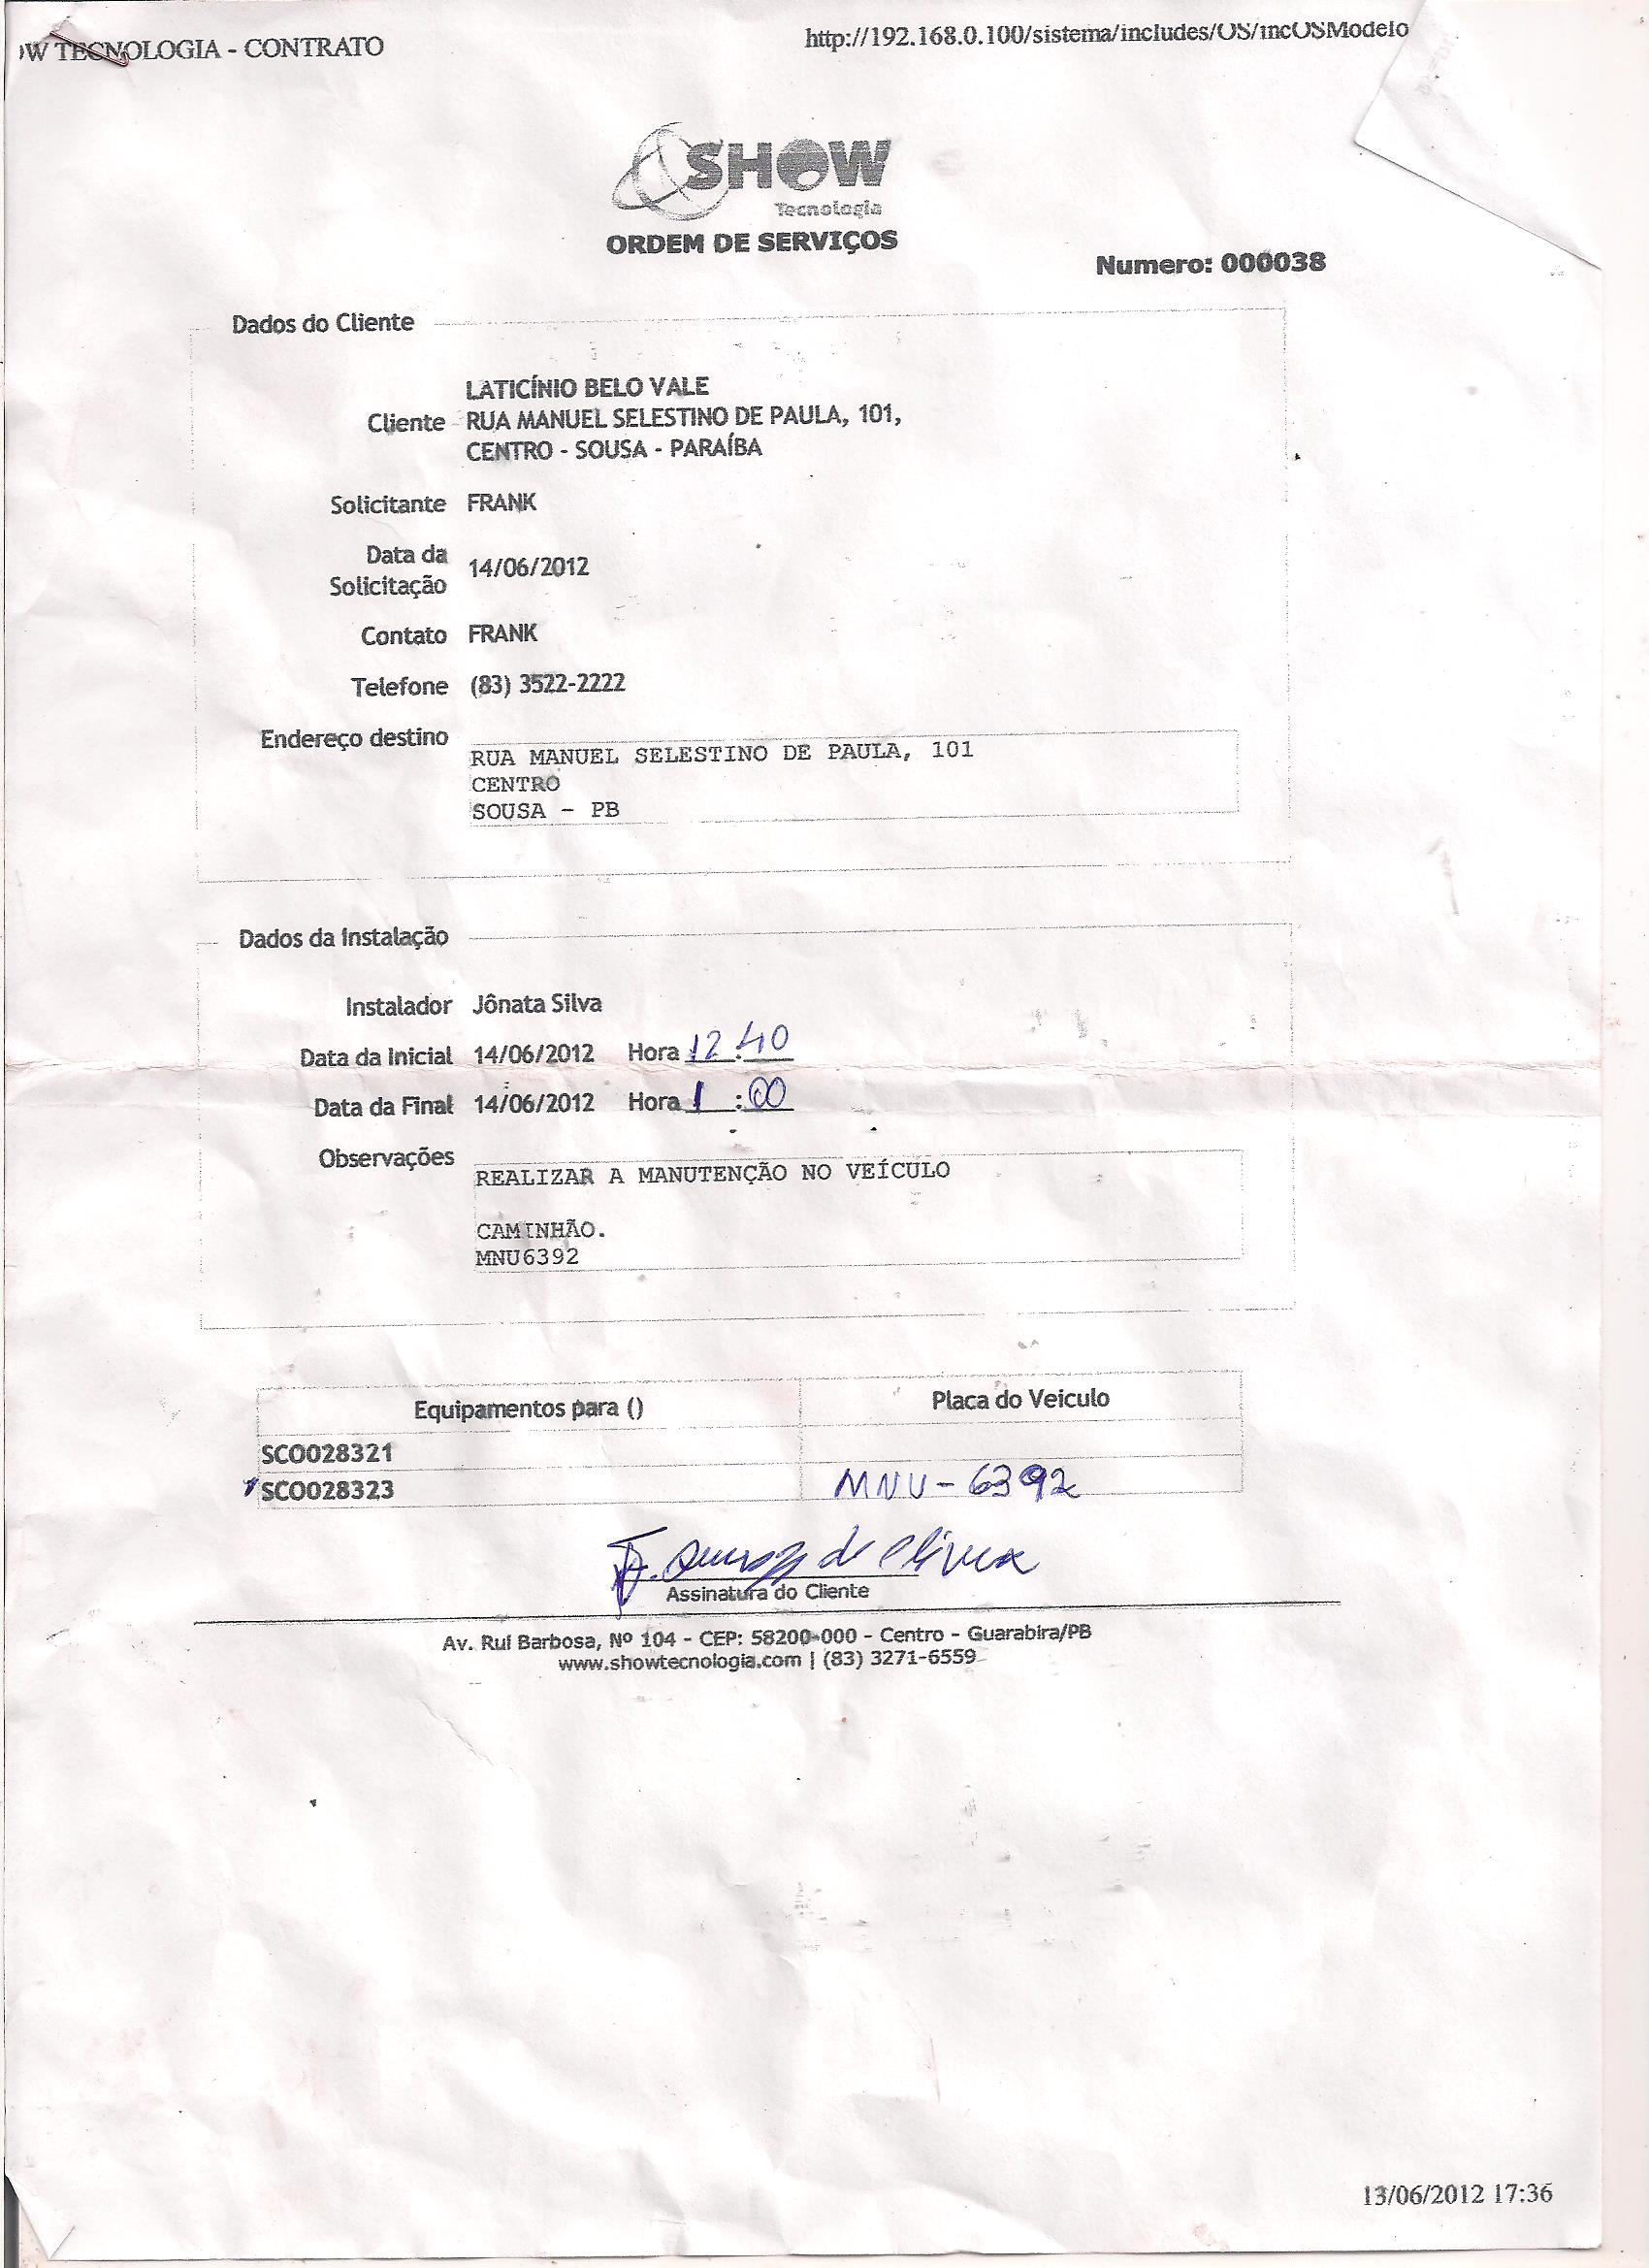 OW TECNOLOGIA - CONTRATO
http://192.168.0.100/sistema/includes/OS/incOSModelo
SHOW
Tecnologia
ORDEM DE SERVIÇOS
Numero: 000038
Dados do Cliente
LATICÍNIO BELO VALE
Cliente RUA MANUEL SELESTINO DE PAULA, 101,
CENTRO - SOUSA - PARAÍBA
Solicitante FRANK
Data da Solicitação 14/06/2012
Contato FRANK
Telefone (83) 3522-2222
Endereço destino
RUA MANUEL SELESTINO DE PAULA, 101
CENTRO
SOUSA - PB
Dados da Instalação
Instalador Jônata Silva
Data da Inicial 14/06/2012 Hora 12:40
Data da Final 14/06/2012 Hora 1:00
Observações
REALIZAR A MANUTENÇÃO NO VEÍCULO
CAMINHÃO.
MNU6392
Equipamentos para () Placa do Veiculo
SCO028321
SCO028323 MNU-6392
de Oliveira
Assinatura do Cliente
Av. Rui Barbosa, Nº 104 - CEP: 58200-000 - Centro - Guarabira/PB
www.showtecnologia.com | (83) 3271-6559
13/06/2012 17:36